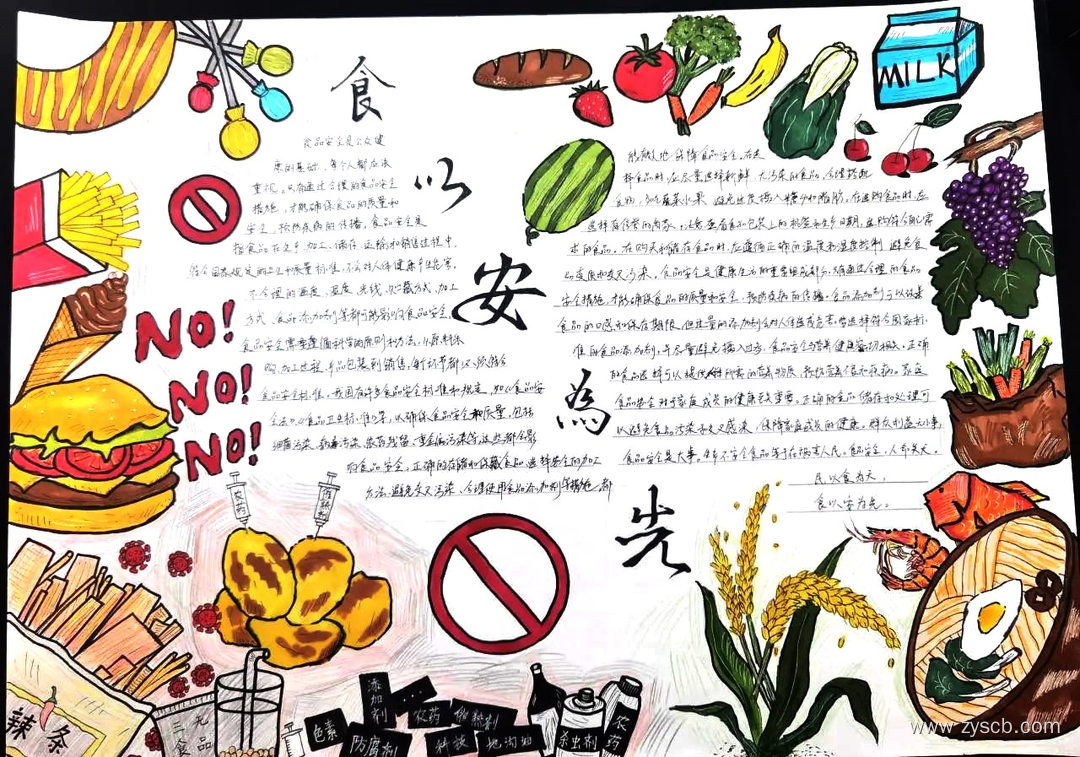 食
以
安
為
先
食品安全是公众健
康的基础，每个人都应该
重视。只有通过合理的食品安全
措施，才能确保食品的质量和
安全，预防疾病的传播。食品安全是
指食品在生产、加工、储存、运输和销售过程中，
符合国家规定的卫生和质量标准，不会对人体健康产生危害。
不合理的温度、湿度、光线、贮藏方式、加工
方式、食品添加剂等都可能影响食品安全。
食品安全需要遵循科学的原则和方法，从原料采
购、加工过程、产品包装到销售，每个环节都必须符合
食品安全标准。我国有许多食品安全标准和规定，如《食品安
全法》《食品卫生标准》等，以确保食品安全和质量。包括
细菌污染、病毒污染、农药残留、重金属污染等，这些都会影
响食品安全。正确的存储和保藏食品、选择安全的加工
方法、避免交叉污染、合理使用食品添加剂等措施，都
能有效地保障食品安全。在选
择食品时，应尽量选择新鲜、无污染的食品，合理搭配
食物，如蔬菜水果，避免过度摄入糖分和脂肪。在选购食品时，应
选择有信誉的商家，注意查看食品包装上的标签和生产日期，选购符合自己需
求的食品。在购买和储存食品时，应遵循正确的温度和湿度控制，避免食
品变质和交叉污染。食品安全是健康生活的重要组成部分，只有通过合理的食品
安全措施，才能确保食品的质量和安全，预防疾病的传播。食品添加剂可以改善
食品的口感和保存期限，但过量的添加剂会对人体造成危害。应选择符合国家标
准的食品添加剂，并尽量避免摄入过多。食品安全与营养健康密切相关。正确
的食品选择可以提供身体所需的营养物质，预防营养不良和疾病。家庭
食品安全对于家庭成员的健康至关重要。正确的食品储存和处理可
以避免食品污染和交叉感染，保障家庭成员的健康。群众利益无小事，
食品安全是大事。生产不安全食品等于在祸害人民。食品安全，人命关天。
民以食为天，
食以安为先。
MILK
No!
No!
No!
农药
催熟剂
辣条
三元食品
色素
添加剂
防腐剂
农药
催熟剂
地沟油
杀虫剂
农药
www.zyscb.com